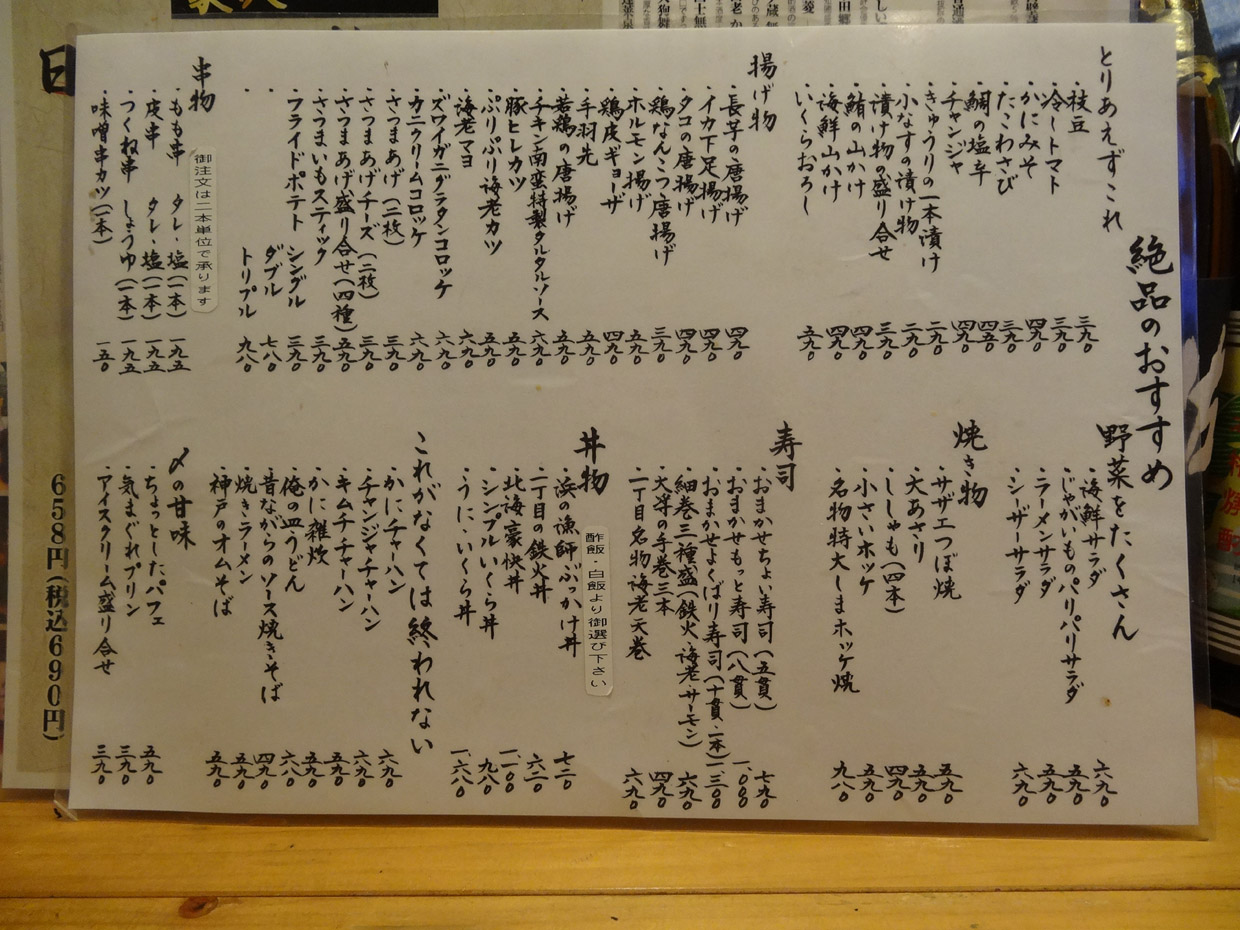 絶品のおすすめ
とりあえずこれ
・枝豆 三九〇
・冷しトマト 三九〇
・かにみそ 四九〇
・たこわさび 三九〇
・鯛の塩辛 四五〇
・チャンジャ 四九〇
・きゅうりの一本漬け 二九〇
・小なすの漬け物 二九〇
・漬け物の盛り合せ 三九〇
・鮪の山かけ 四九〇
・海鮮山かけ 四九〇
・いくらおろし 五九〇
揚げ物
・長芋の唐揚げ 四九〇
・イカ下足揚げ 四九〇
・タコの唐揚げ 四九〇
・鶏なんこつ唐揚げ 三九〇
・ホルモン揚げ 五九〇
・鶏皮ギョーザ 四九〇
・手羽先 五九〇
・若鶏の唐揚げ 五九〇
・チキン南蛮特製タルタルソース 六九〇
・豚ヒレカツ 五九〇
・ぷりぷり海老カツ 五九〇
・海老マヨ 六九〇
・ズワイガニグラタンコロッケ 六九〇
・カニクリームコロッケ 六九〇
・さつまあげ(二枚) 三九〇
・さつまあげチーズ(二枚) 三九〇
・さつまあげ盛り合せ(四種) 五九〇
・さつまいもスティック 三九〇
・フライドポテト シングル 三九〇
・ ダブル 七八〇
・ トリプル 九八〇
串物
御注文は二本単位で承ります
・もも串 タレ・塩(一本) 一九五
・皮串 タレ・塩(一本) 一九五
・つくね串 しょうゆ(一本) 一九五
・味噌串カツ(一本) 一五〇
野菜をたくさん
・海鮮サラダ 六九〇
・じゃがいものパリパリサラダ 五九〇
・ラーメンサラダ 五九〇
・シーザーサラダ 六九〇
焼き物
・サザエつぼ焼 五九〇
・大あさり 五九〇
・ししゃも(四本) 四九〇
・小さいホッケ 五九〇
・名物特大しまホッケ焼 九八〇
寿司
・おまかせちょい寿司(五貫) 七九〇
・おまかせもっと寿司(八貫) 一、〇〇〇
・おまかせよくばり寿司(十貫・二本) 一三〇〇
・細巻三種盛(鉄火・海老・サーモン) 六九〇
・大葉の手巻三本 四九〇
・一丁目名物海老天巻 六九〇
丼物
酢飯・白飯より御選び下さい
・浜の漁師ぶっかけ丼 七二〇
・一丁目の鉄火丼 六二〇
・北海豪快丼 一一〇〇
・シンプルいくら丼 九八〇
・うに、いくら丼 一、六八〇
これがなくては終われない
・かにチャーハン 六九〇
・チャンジャチャーハン 六九〇
・キムチチャーハン 五九〇
・かに雑炊 五九〇
・俺の皿うどん 六八〇
・昔ながらのソース焼きそば 四九〇
・焼きラーメン 五九〇
・神戸のオムそば 五九〇
〆の甘味
・ちょっとしたパフェ 五九〇
・気まぐれプリン 三九〇
・アイスクリーム盛り合せ 三九〇
658円(税込690円)